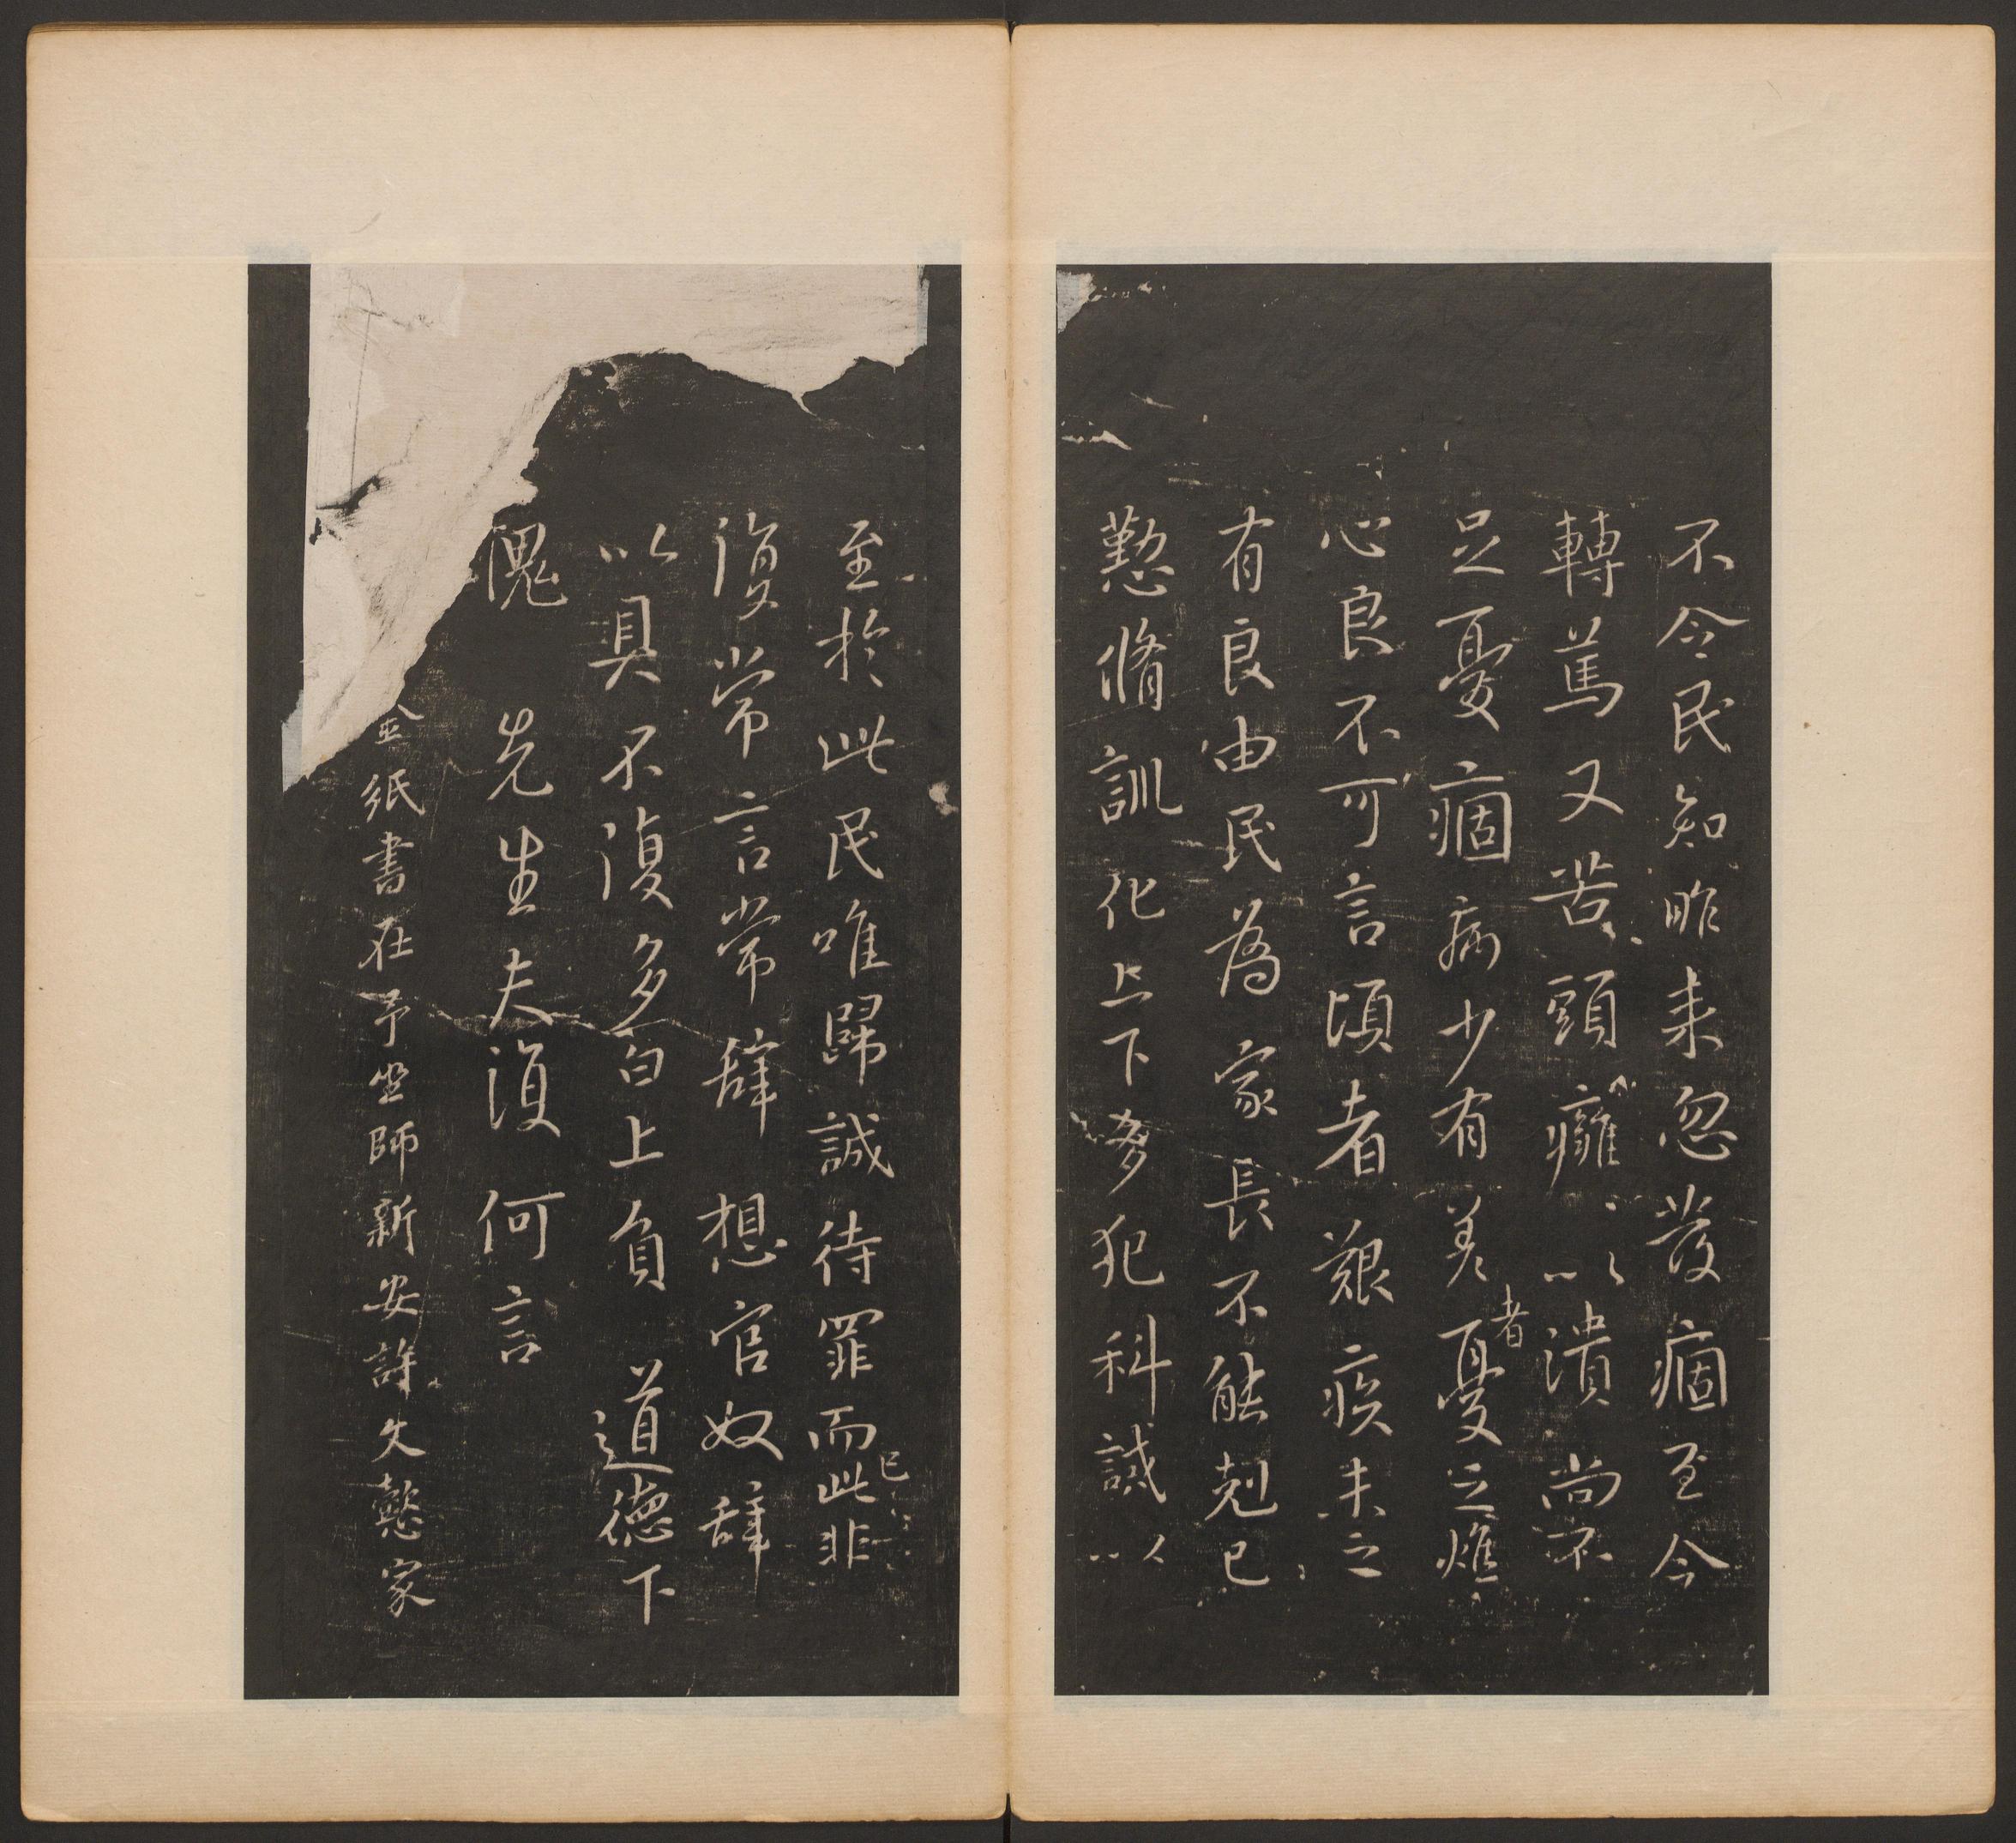 不令民知昨来忽發痼至今
轉篤又苦頭癰以潰尚不
足憂痼病少有差者憂之燋
心良不可言頃者艱疾未之
有良由民為家長不能剋己
懃脩訓化上下多犯科誡以
至於此民唯歸誠待罪而已此非
復常言常辭想官奴辭
以具不復多白上負道德下
愧先生夫復何言
金紙書在予坐師新安許文懿家